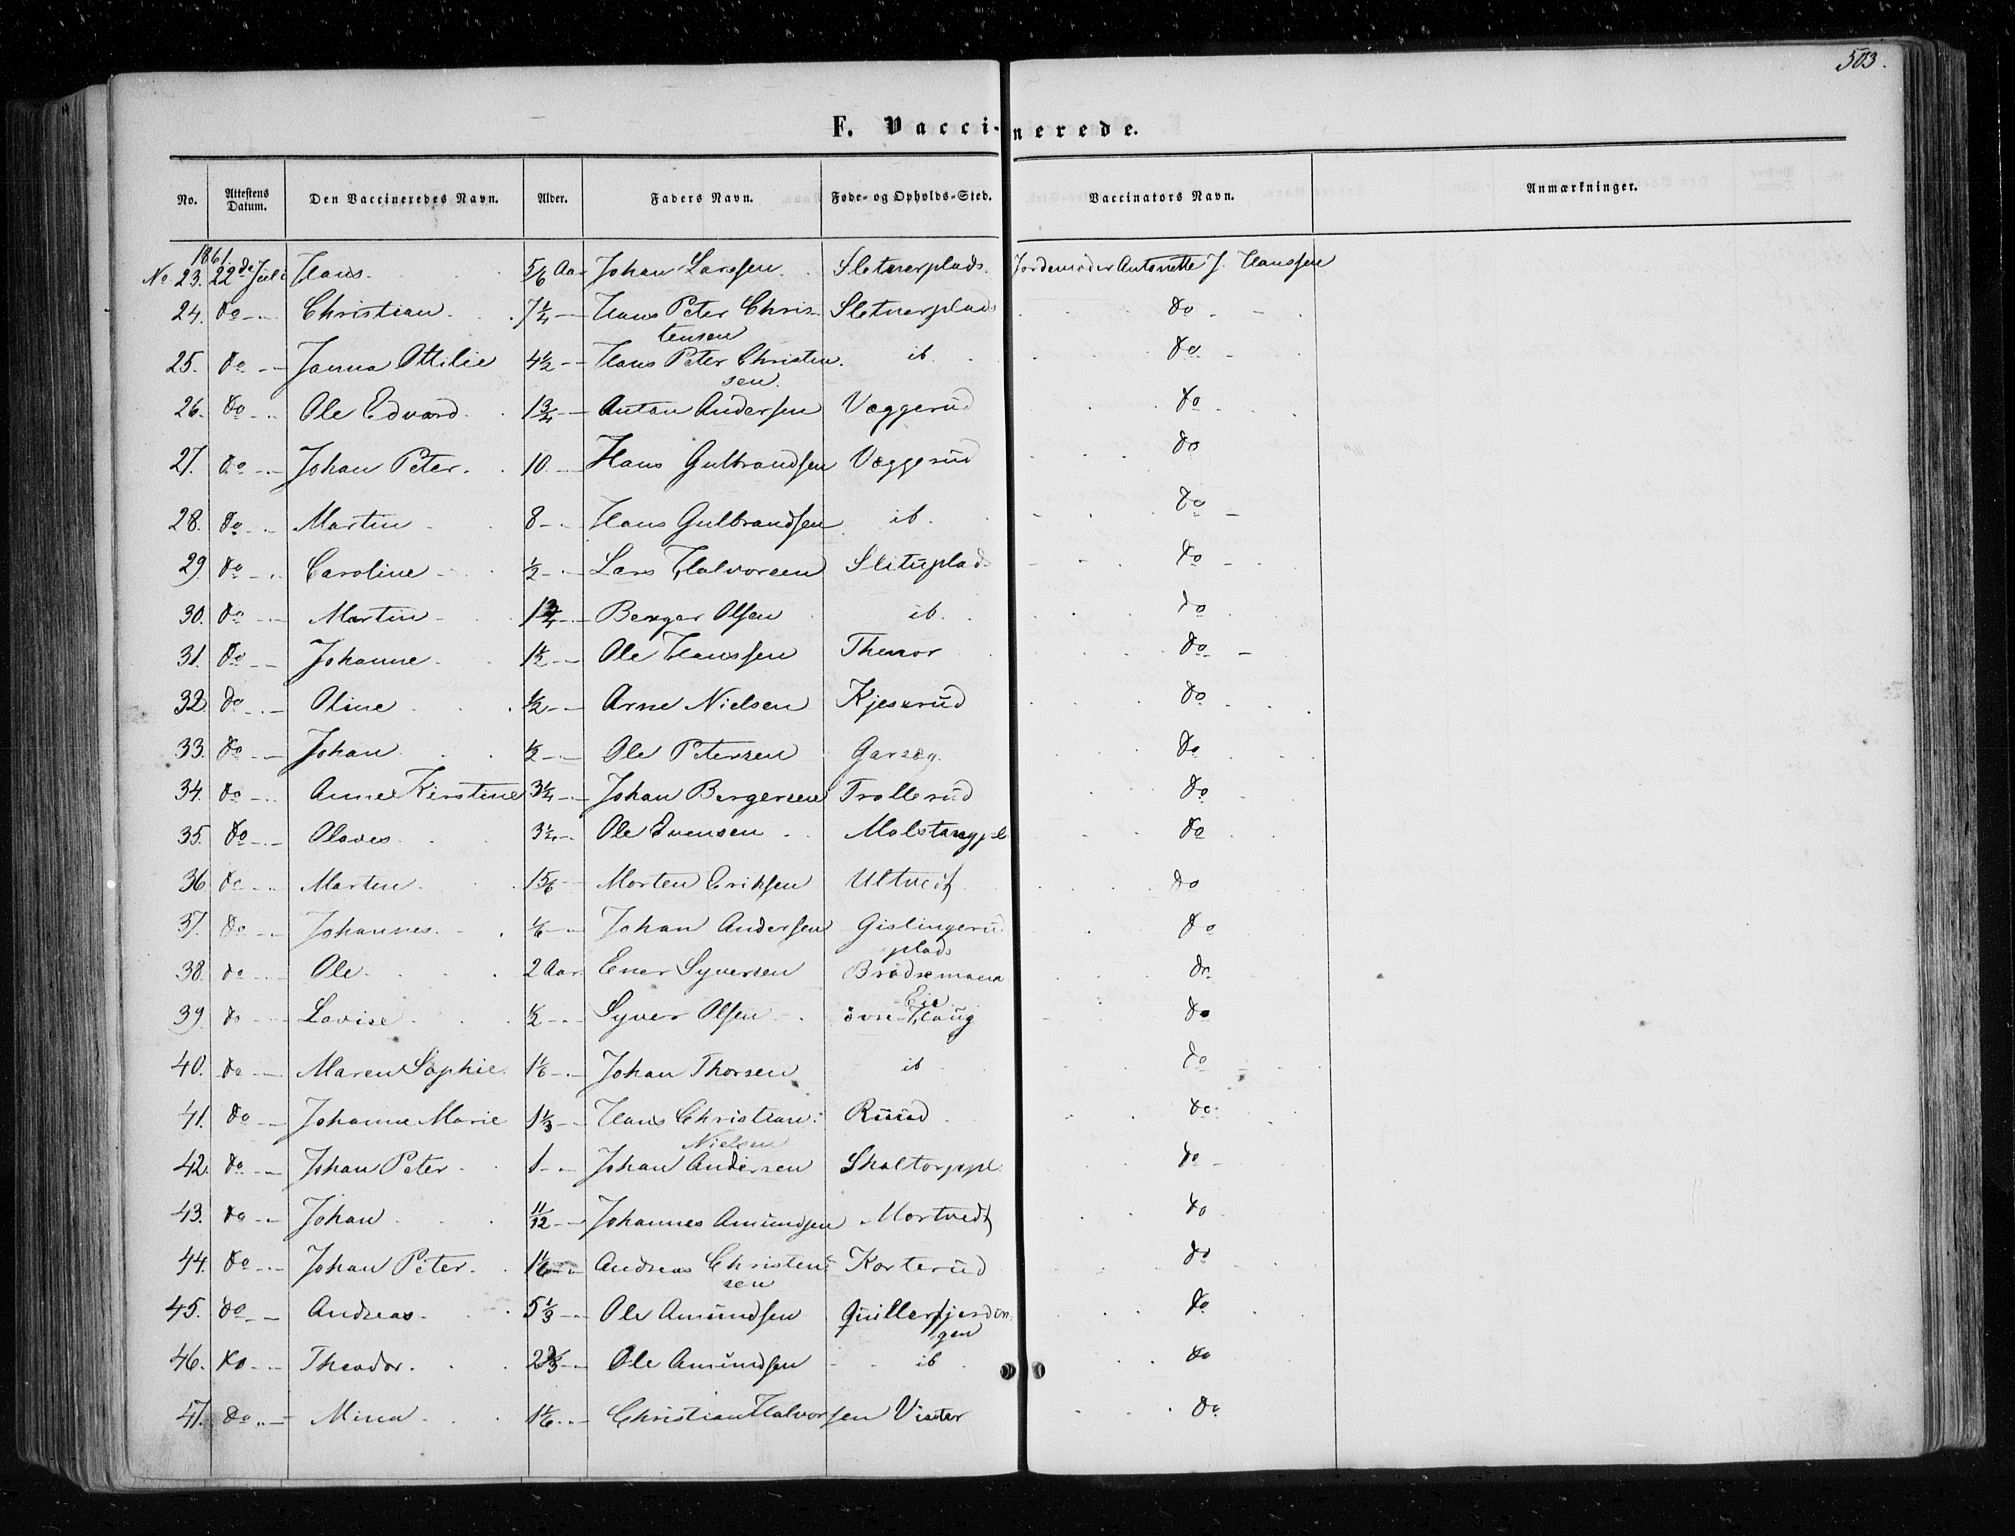 503.
F. Vaccinerede.
No. Attestens Datum. Den Vaccineredes Navn. Alder. Faders Navn. Føde- og Opholds-Sted. Vaccinators Navn. Anmærkninger.
1861.
No 23. 22de Juli Hans. 5/6 Aar Johan Larssen. Sletnerplads. Jordemoder Antonette J. Hanssen
24. do Christian 7 1/4 Hans Peter Chris- Sletnerplads do
tensen
25. do Janna Ottilie 4 1/2 Hans Peter Christen ib do
sen.
26. do Ole Edvard 1 3/4 Anton Andersen Væggerud do
27. do Johan Peter. 10 Hans Gulbrandsen Væggerud do
28. do Martin 8 Hans Gulbrandsen ib. do
29 do Caroline 1/2 Lars Halvorsen Slituplads do
30. do Martin 1 3/4 Berger Olsen ib. do
31. do Johanne 1 1/2 Ole Hanssen Thenor do
32. do Oline 1/2 Arne Nielsen Kjeserud do
33. do Johan 1/2 Ole Petersen Garseg. do
34. do Anne Kirstine 3 1/4 Johan Bergersen Trollerud do
35. do Olaves 3 1/4 Ole Evensen Molstangpl do
36 do Martin 1 5/6 Morten Eriksen Ultvedt do
37. do Johannes. 1/6 Johan Andersen Gislingerud do
plads
38. do Ole 2 Aar Ener Syversen Brødsmann do
Eie
39 do Lovise 1/2 Syver Olsen øvre Haug do
40. do Maren Sophie. 1 1/6 Johan Thorsen ib do
41. do Johanne Marie 1 1/3 Hans Christian Ruud do
Nielsen
42. do Johan Peter 1 Johan Andersen Skaltorppl. do
43. do Johan 11/12 Johannes Amundsen Mortvedt do
44. do Johan Peter. 1 1/6 Andreas Christen Korterud do
sen
45. do Andreas. 5 1/3 Ole Amundsen Quillerfjerdin do
gen
46. do Theodor. 2 2/3 Ole Amundsen ib do
47. do Mina 1 1/6 Christian Halvorsen Vister do